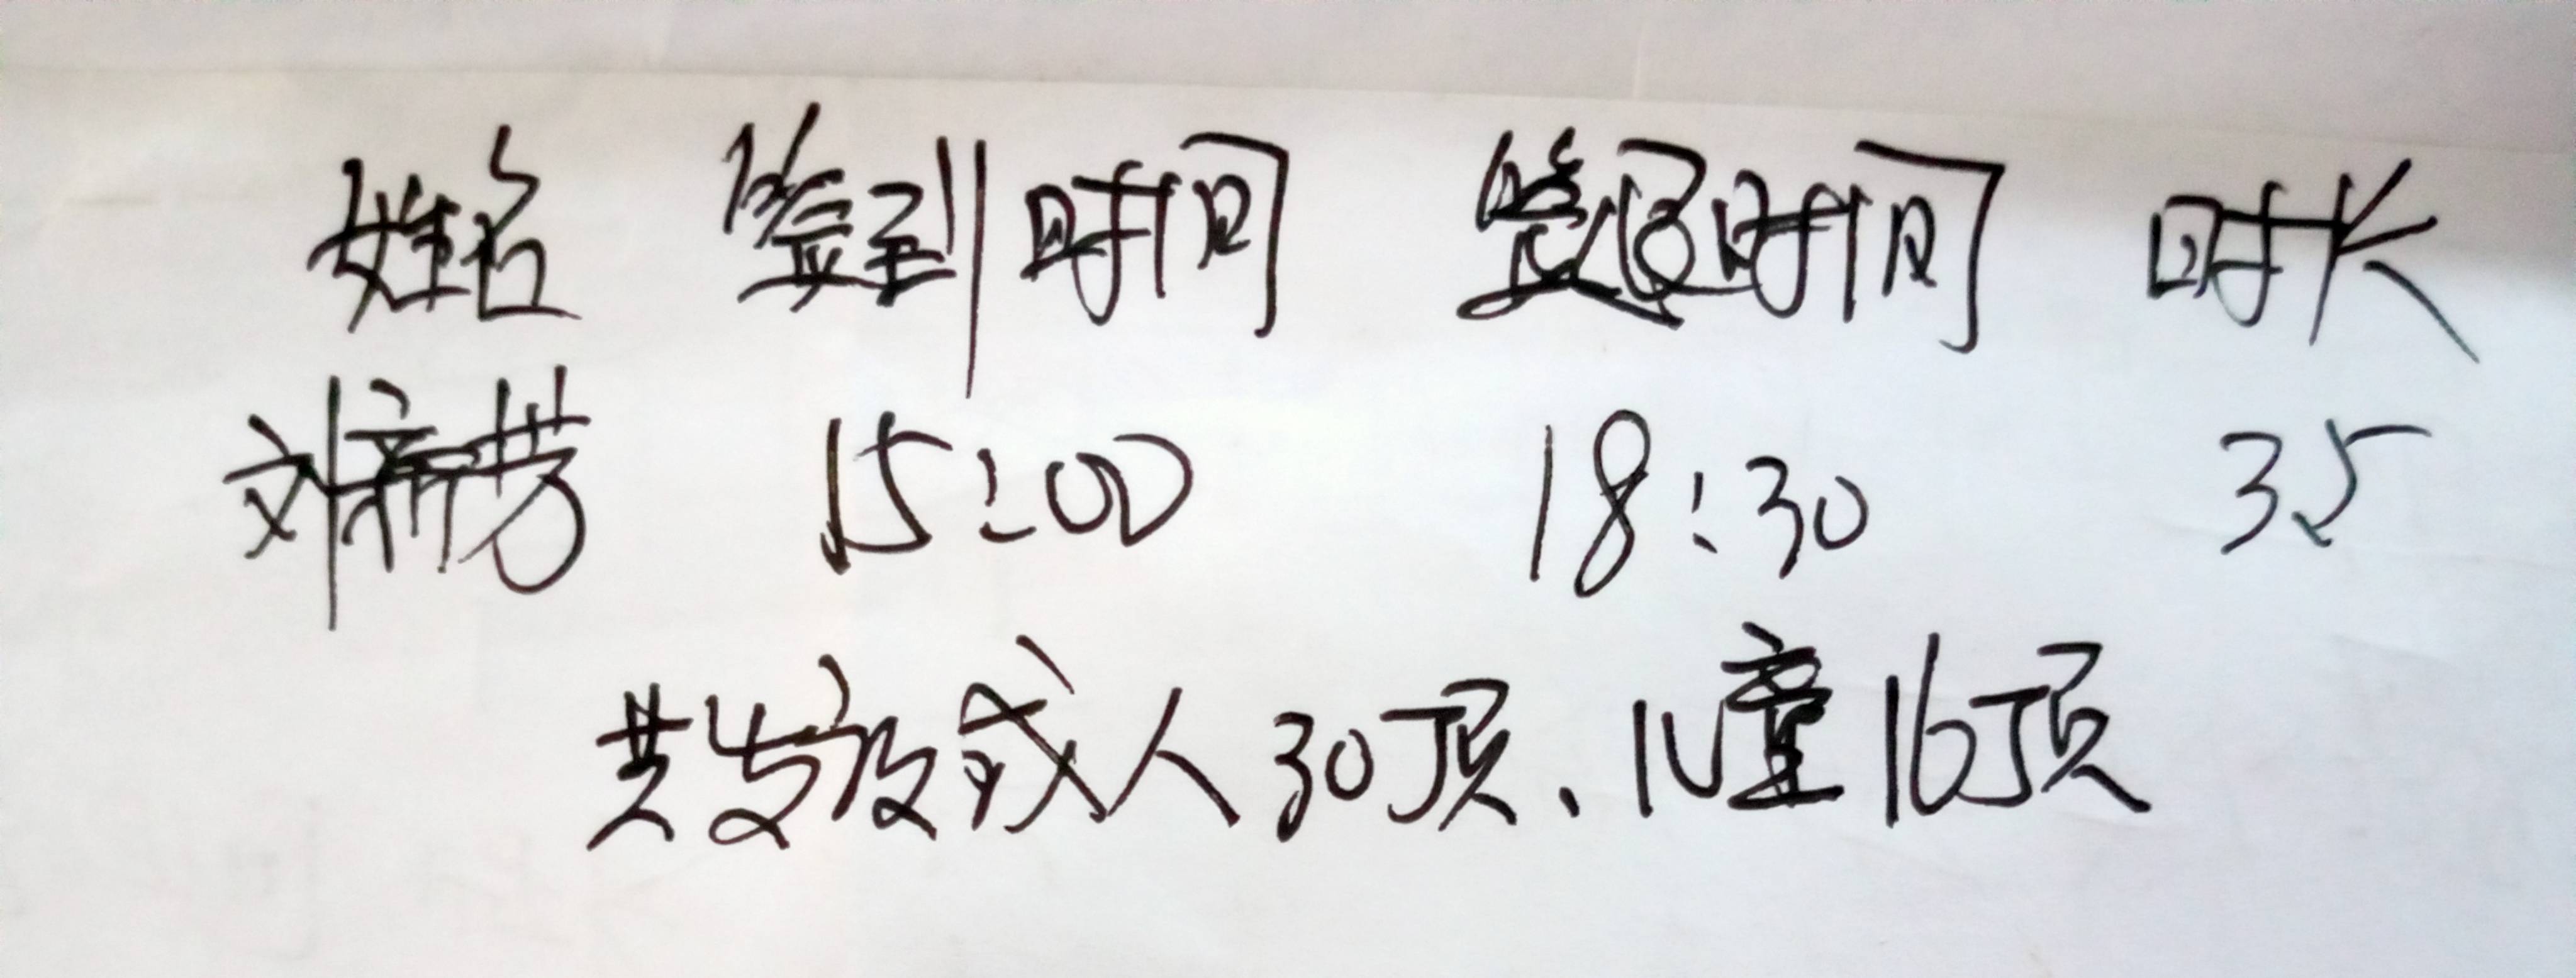 姓名 签到时间 签退时间 时长
刘新芳 15:00 18:30 3.5
共发放成人30顶、儿童16顶